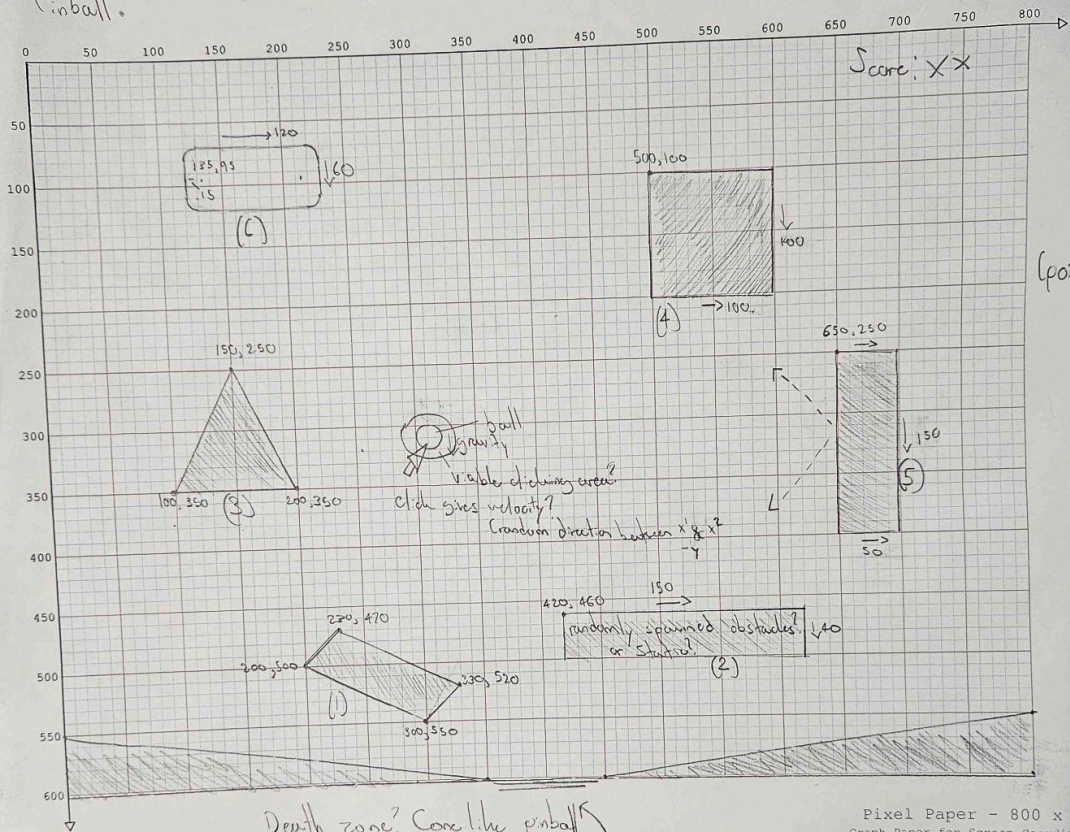 Pinball.
0 50 100 150 200 250 300 350 400 450 500 550 600 650 700 750 800
Score: XX
50
100
150
200
250
300
350
400
450
500
550
600
120
135,95
60
.15
(6)
500,100
100
(4)
100
650,250
150
(5)
50
150, 250
100, 350
(3)
200,350
ball
gravity
viable clicking area?
Click gives velocity?
(random direction between x¹ & x²
-y
150
420, 460
randomly spawned obstacles?
or static?
40
(2)
230, 470
200,500
330, 520
(1)
300,550
Death zone? Cone like pinball
Pixel Paper - 800 x